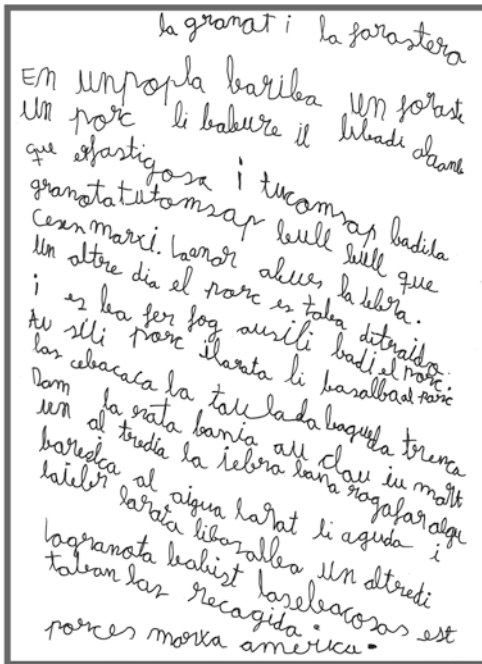 la granat i la forastera
En un popla bariba un foraste
un porc li babure il libadi abamb
que esfastigosa i tucomsap badila
granota tutomsap bull bull que
Cesen marxi. laenar abues la lebra.
un altre dia el porc es taba ditraido
i es ba fer fog ausili badi el porc.
Au sili porc ilarata li basalbaal porc
las cebacaca la taulada baqueda trenca
Dam la rata bania au clau iu malt
un al tredia la iebra bana ragafar algu
baresica al aigua larat li aguda i
laiebr larata libasalba un altredi
lagranota babist lasebacosas est
taban las recagida.
porces marxa america.